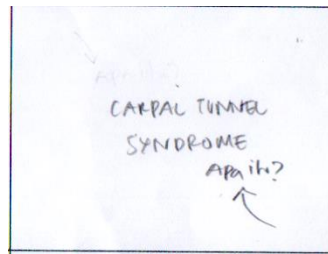 CARPAL TUNNEL
SYNDROME
Apa itu?